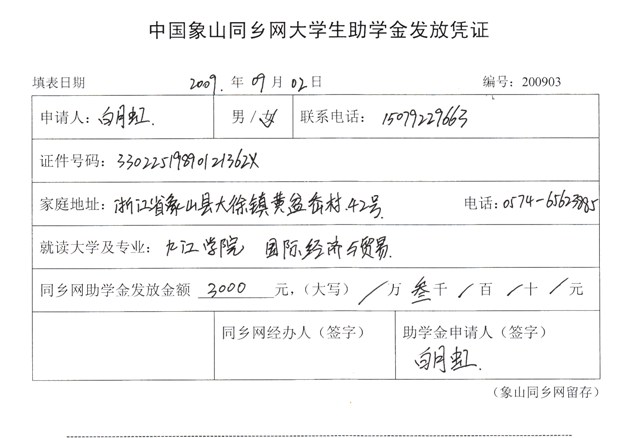 中国象山同乡网大学生助学金发放凭证
填表日期 2009. 年 09 月 02 日 编号: 200903
申请人: 白月虹. 男 / 女 联系电话: 15079229663
证件号码: 33022519890121362X
家庭地址: 浙江省象山县大徐镇黄盆岙村.42号 电话: 0574-65623985
就读大学及专业: 九江学院 国际经济与贸易.
同乡网助学金发放金额 3000 元,(大写) / 万 叁 千 / 百 / 十 / 元
同乡网经办人(签字) 助学金申请人(签字)
白月虹.
(象山同乡网留存)